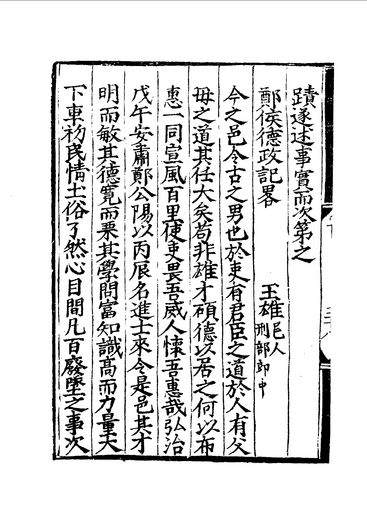 蹟遂述事實而次第之
鄭侯德政記畧 王雄邑人刑部郎中
今之邑令古之男也於吏有君臣之道於人有父
母之道其任大矣苟非雄才碩德以居之何以布
惠一同宣風百里使吏畏吾威人懷吾惠哉弘治
戊午安肅鄭公陽以丙辰名進士來令是邑其才
明而敏其德寬而栗其學問富知識高而力量大
下車初民情土俗了然心目間凡百廢墜之事次